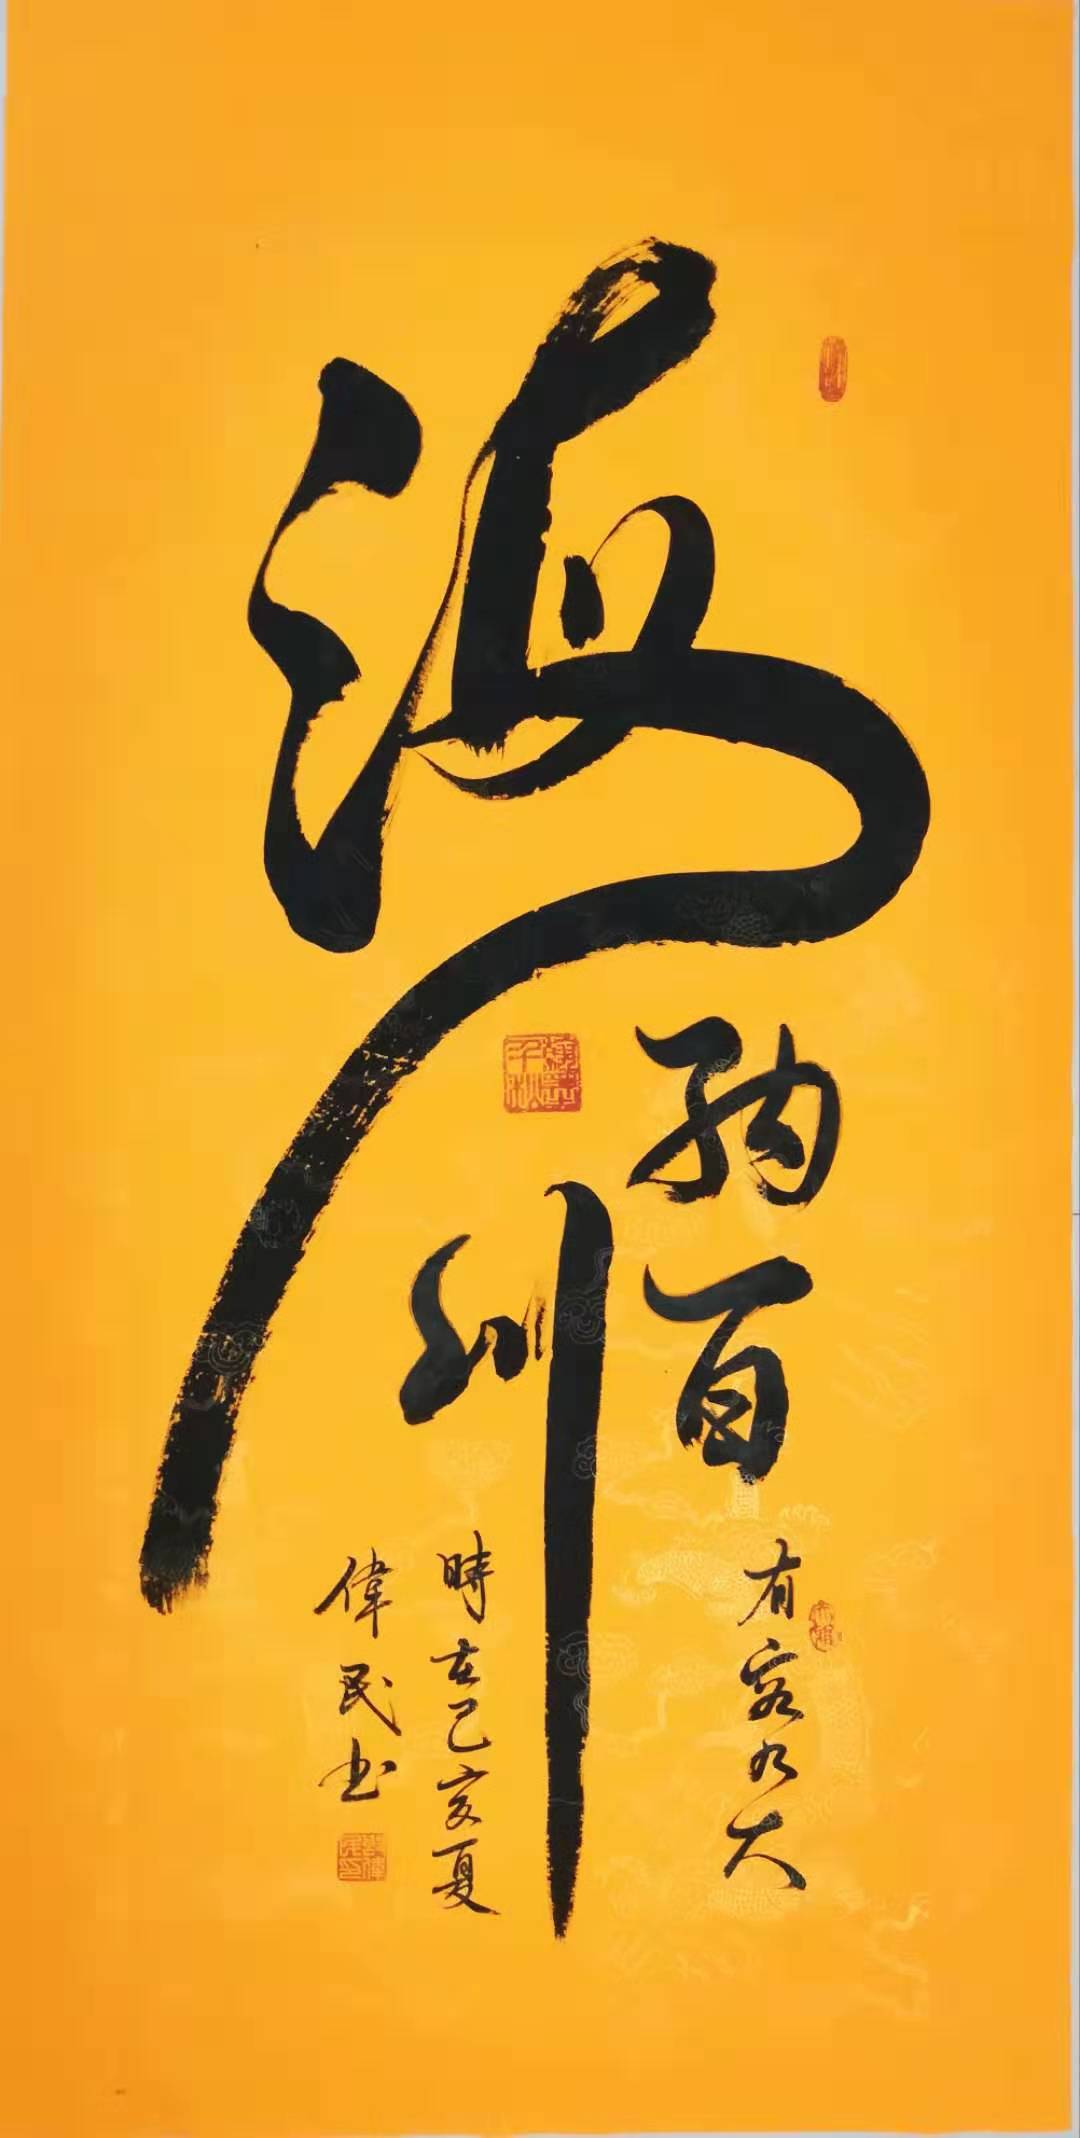 海
納百
川
有容乃大
時在己亥夏
偉民书